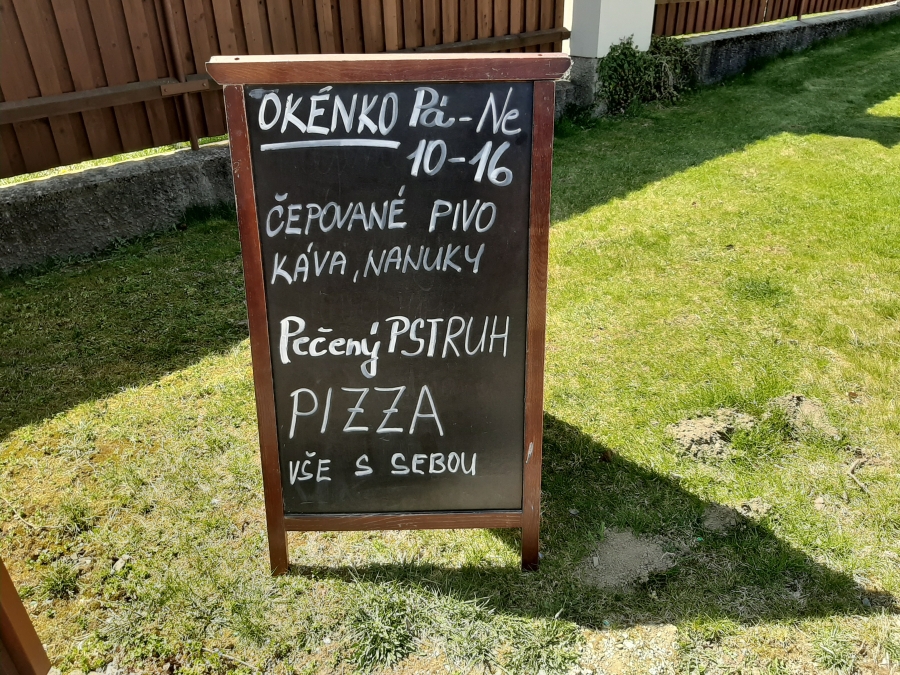 OKÉNKO Pá-Ne
10-16
ČEPOVANÉ PIVO
KÁVA, NANUKY
Pečený PSTRUH
PIZZA
VŠE S SEBOU